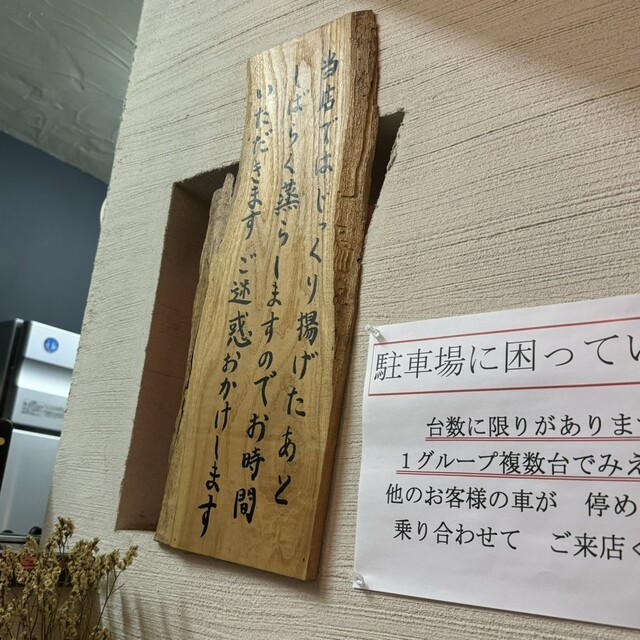 当店ではじっくり揚げたあと
しばらく蒸らしますのでお時間
いただきますご迷惑おかけします
駐車場に困ってい
台数に限りがありま
1グループ複数台でみえ
他のお客様の車が 停め
乗り合わせて ご来店く